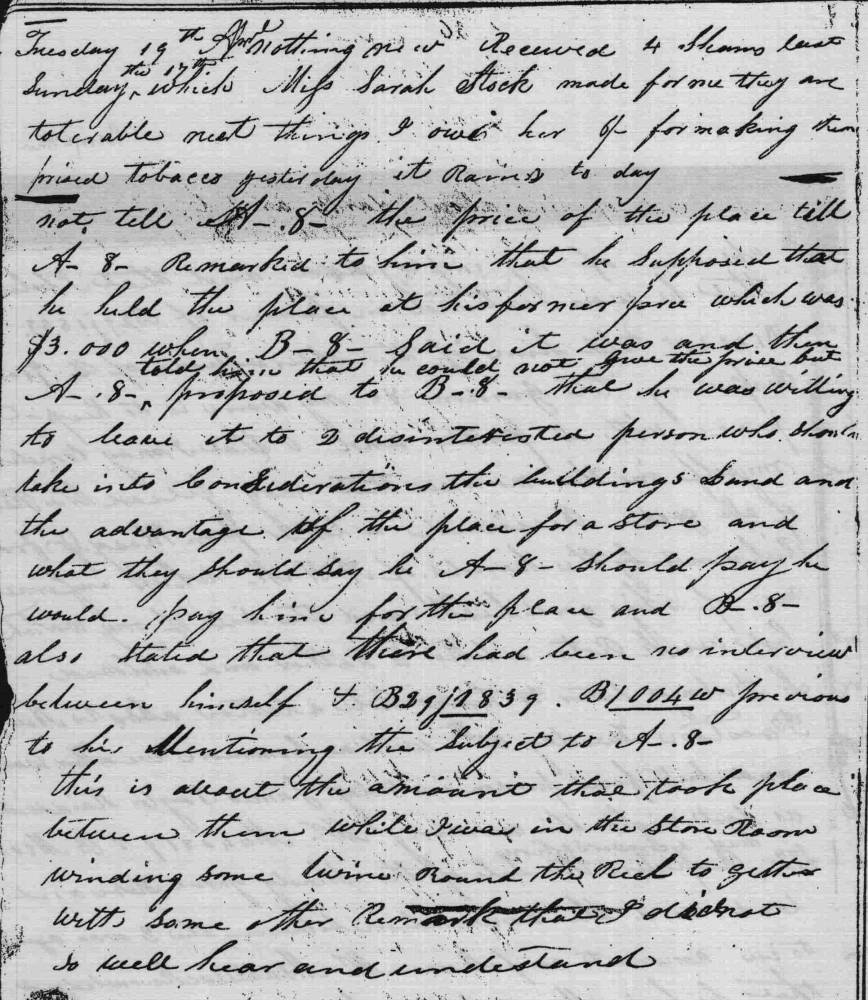 Tuesday 19th Aprl nothing new Received 4 Shams last
Sunday the 17th which Miss Sarah Stock made for me they are
tolerable neat things I owe her for making them
prised tobacco yesterday it Rains to day
not tell A-.8- the price of the place till
A-8- Remarked to him that he Supposed that
he held the place at his former price which was
$3.000 when B-8- Said it was and then
told him that he could not give the price but
A-.8- proposed to B-.8- that he was willing
to leave it to 2 disinterested person who should
take into Considerations the buildings Land and
the advantage of the place for a store and
what they should say he A-8- should pay he
would. pay him for the place and B-.8-
also stated that there had been no interview
between himself & B29j1839. B1004w previous
to his Mentioning the Subject to A-.8-
this is about the amount that took place
between them while I was in the Store Room
winding some twine Round the Reel to gether
with some other Remark that I did not
so well hear and undestand